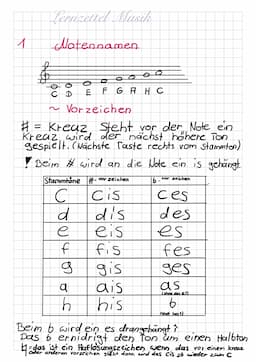 Lernzettel Musik
1 Notennamen
C D E F G A H C
~ Vorzeichen
# = Kreuz Steht vor der Note ein
Kreuz wird der nächst höhere Ton
gespielt. (Nächste Taste rechts vom Stammton)
! Beim # wird an die Note ein is gehängt
Stammtöne #-vorzeichen b-vorzeichen
C cis ces
d dis des
e eis es
f fis fes
g gis ges
a ais as
h his b
Beim b wird ein es drangehängt?
Das b ernidrigt den Ton um einen Halbton
♮-das ist ein Auflösungszeichen wenn das vor einem kreuz
oder anderen vorzeichen steht dann wird das cis zb wieder zum C